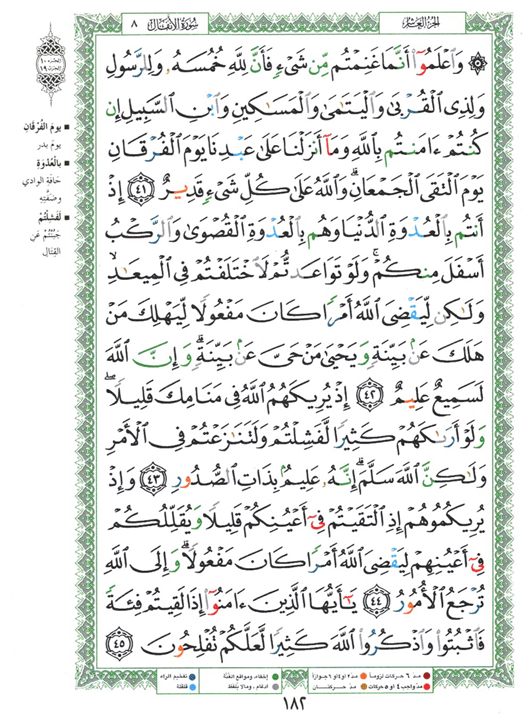 الجزء العاشر
سورة الأنفال ٨
۞ وَٱعْلَمُوٓا۟ أَنَّمَا غَنِمْتُم مِّن شَىْءٍ فَأَنَّ لِلَّهِ خُمُسَهُۥ وَلِلرَّسُولِ
وَلِذِى ٱلْقُرْبَىٰ وَٱلْيَتَٰمَىٰ وَٱلْمَسَٰكِينِ وَٱبْنِ ٱلسَّبِيلِ إِن
كُنتُمْ ءَامَنتُم بِٱللَّهِ وَمَآ أَنزَلْنَا عَلَىٰ عَبْدِنَا يَوْمَ ٱلْفُرْقَانِ
يَوْمَ ٱلْتَقَى ٱلْجَمْعَانِ ۗ وَٱللَّهُ عَلَىٰ كُلِّ شَىْءٍ قَدِيرٌ ٤١ إِذْ
أَنتُم بِٱلْعُدْوَةِ ٱلدُّنْيَا وَهُم بِٱلْعُدْوَةِ ٱلْقُصْوَىٰ وَٱلرَّكْبُ
أَسْفَلَ مِنكُمْ ۚ وَلَوْ تَوَاعَدتُّمْ لَٱخْتَلَفْتُمْ فِى ٱلْمِيعَٰدِ ۙ
وَلَٰكِن لِّيَقْضِىَ ٱللَّهُ أَمْرًا كَانَ مَفْعُولًا لِّيَهْلِكَ مَنْ
هَلَكَ عَنۢ بَيِّنَةٍ وَيَحْيَىٰ مَنْ حَىَّ عَنۢ بَيِّنَةٍ ۗ وَإِنَّ ٱللَّهَ
لَسَمِيعٌ عَلِيمٌ ٤٢ إِذْ يُرِيكَهُمُ ٱللَّهُ فِى مَنَامِكَ قَلِيلًا ۖ
وَلَوْ أَرَىٰكَهُمْ كَثِيرًا لَّفَشِلْتُمْ وَلَتَنَٰزَعْتُمْ فِى ٱلْأَمْرِ
وَلَٰكِنَّ ٱللَّهَ سَلَّمَ ۗ إِنَّهُۥ عَلِيمٌۢ بِذَاتِ ٱلصُّدُورِ ٤٣ وَإِذْ
يُرِيكُمُوهُمْ إِذِ ٱلْتَقَيْتُمْ فِىٓ أَعْيُنِكُمْ قَلِيلًا وَيُقَلِّلُكُمْ
فِىٓ أَعْيُنِهِمْ لِيَقْضِىَ ٱللَّهُ أَمْرًا كَانَ مَفْعُولًا ۗ وَإِلَى ٱللَّهِ
تُرْجَعُ ٱلْأُمُورُ ٤٤ يَٰٓأَيُّهَا ٱلَّذِينَ ءَامَنُوٓا۟ إِذَا لَقِيتُمْ فِئَةً
فَٱثْبُتُوا۟ وَٱذْكُرُوا۟ ٱللَّهَ كَثِيرًا لَّعَلَّكُمْ تُفْلِحُونَ ٤٥
■ يوم الفُرْقَانِ
يوم بدر
■ بالْعُدْوَةِ
حافة الوادي
وضفّته
■ لَفَشِلْتُمْ
جَبُنْتُمْ عن
القتال
مدّ ٦ حركات لزوماً
مدّ ٢ او ٤ او ٦ جوازاً
إخفاء، ومواقع الغُنَّة
تفخيم الراء
مدّ واجب ٤ او ٥ حركات
مدّ حركتان
ادغام، ومالا يلفظ
قلقلة
١٨٢